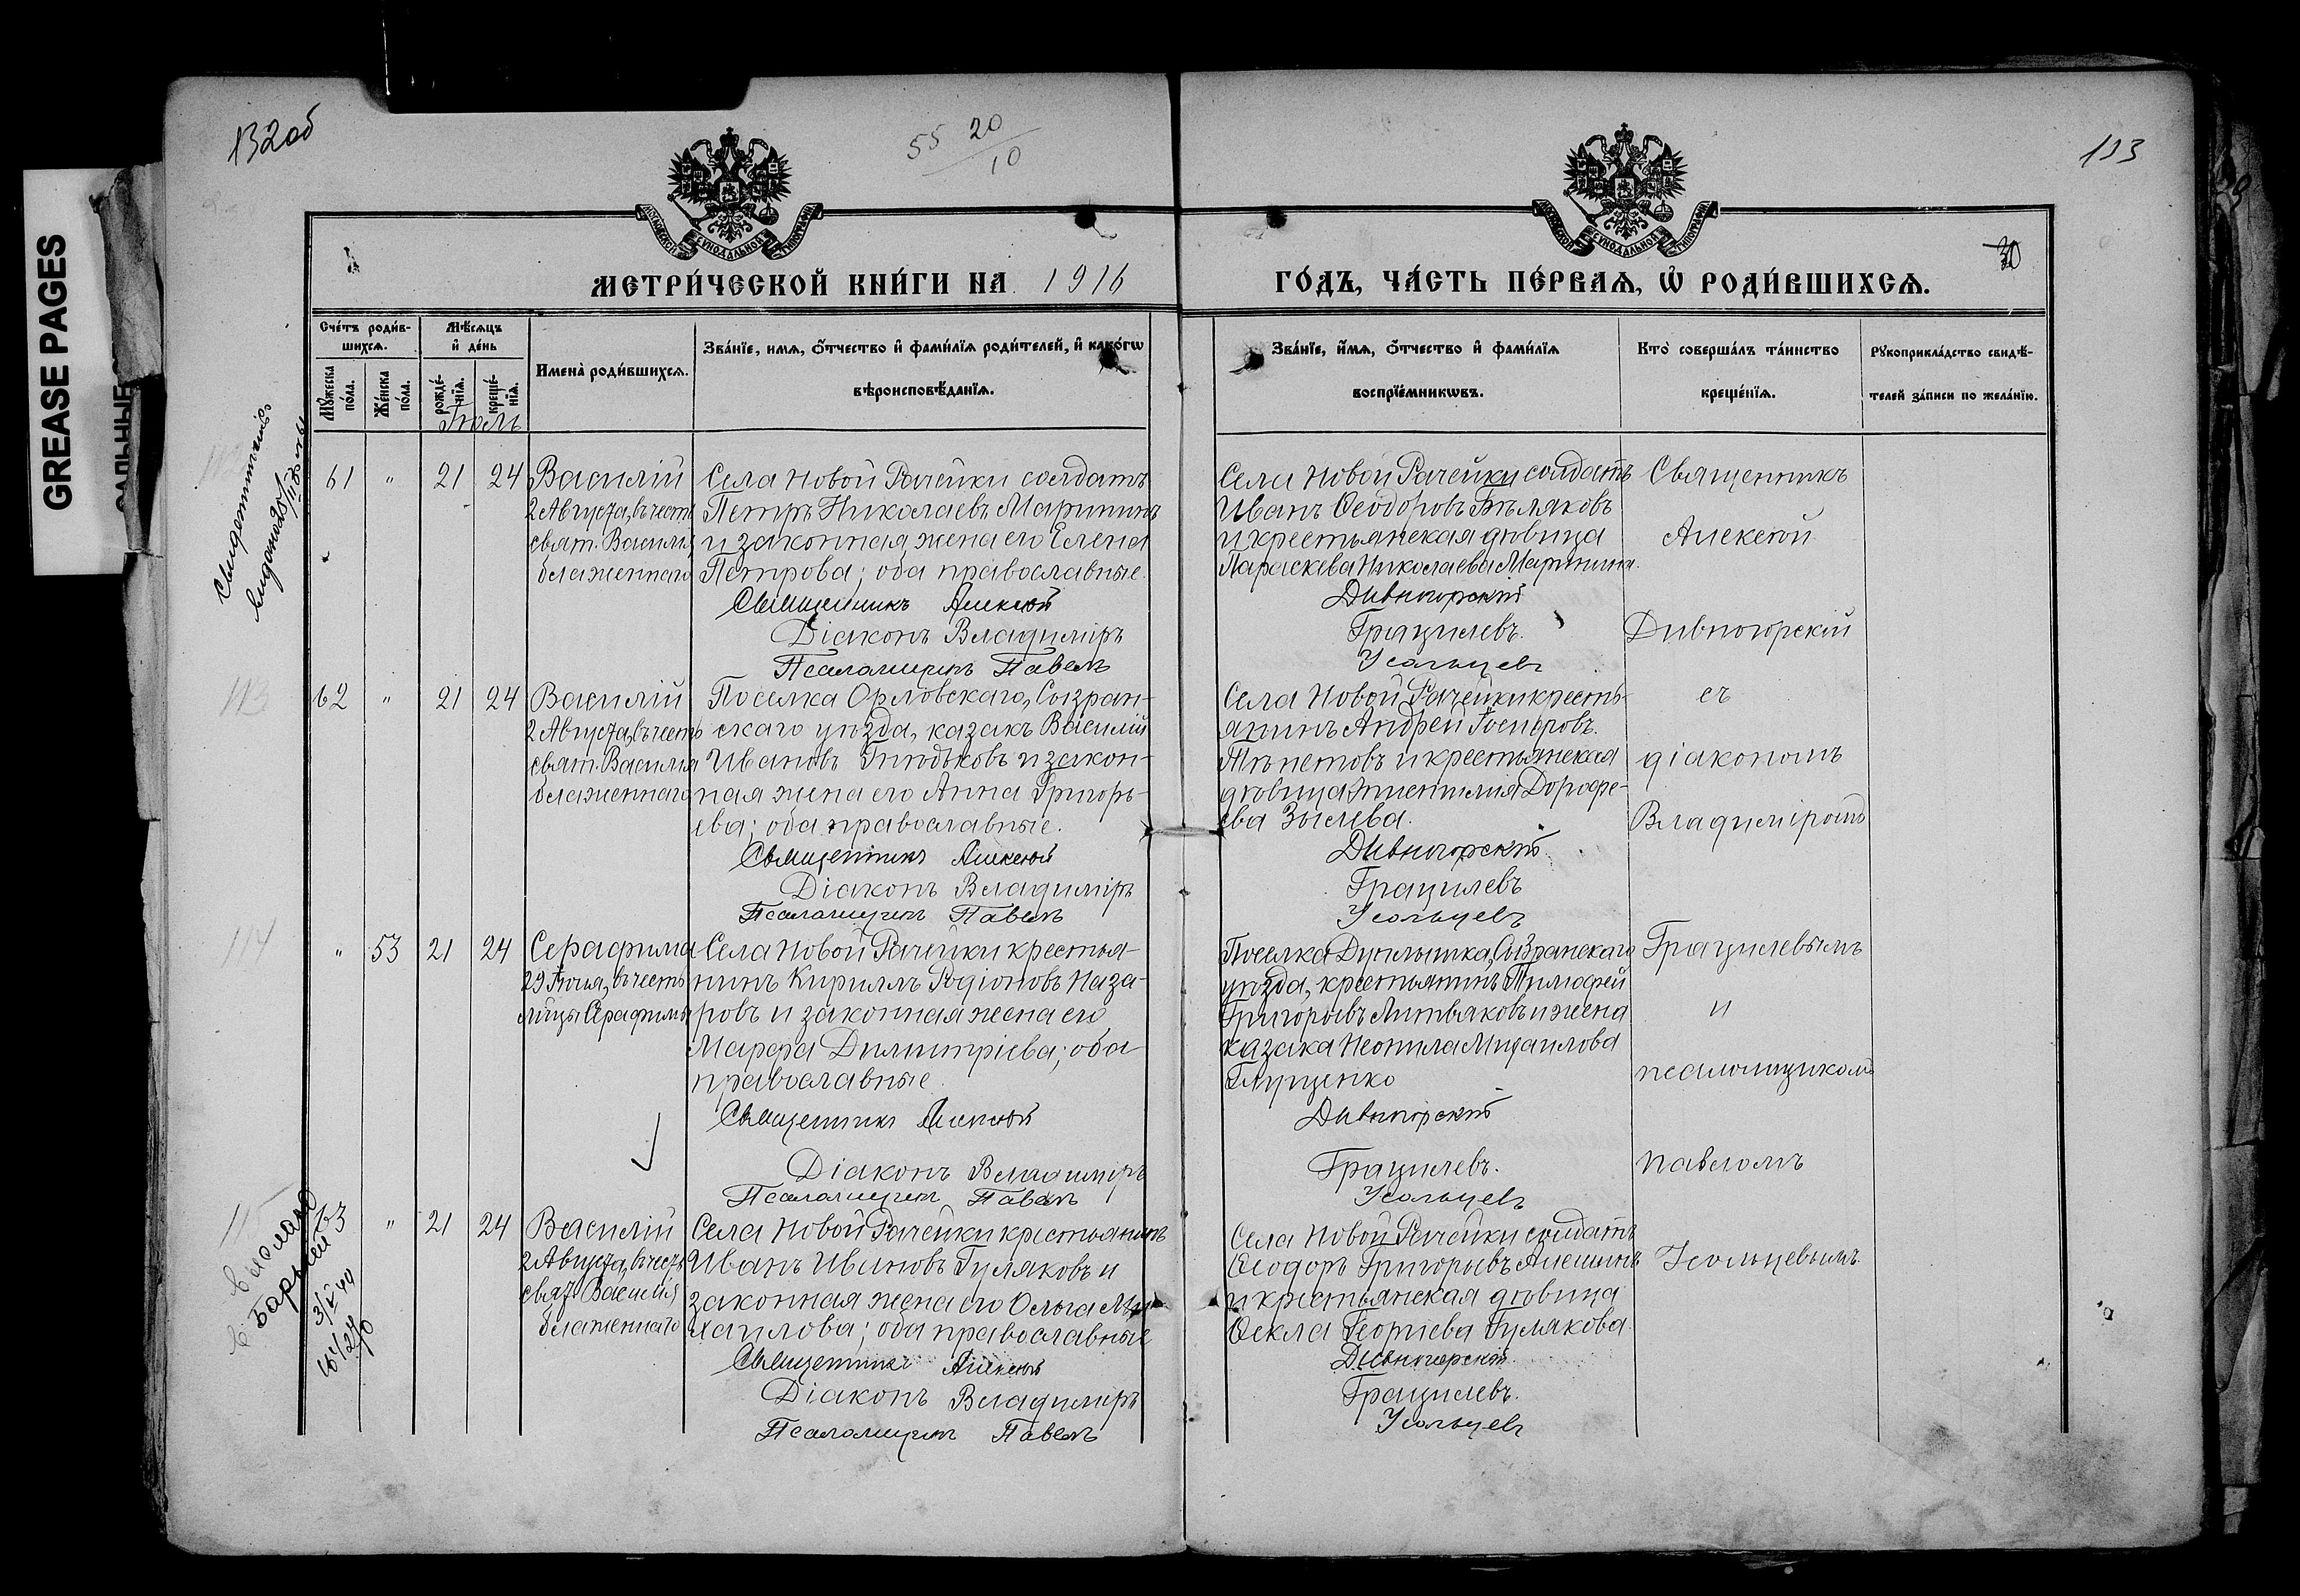 GREASE PAGES
132об
55 20/10
133
30
МЕТРИ́ЧЕСКОЙ КНИ́ГИ НА 1916
ГО́ДЪ, ЧА́СТЬ ПЕ́РВАЯ, Ѽ РОДИ́ВШИХСЯ.
Сче́тъ роди́в-
шихся.
Мѣ́сяцъ
и де́нь
Имена̀ роди́вшихся.
Зва́нїе, имя, ѻ҆́тчество и҆ фами́лїя роди́телей, и҆ како́гѡ
вѣроисповѣ́данїя.
Му́жеска
по́ла.
Же́нска
по́ла.
рожде́-
нїя.
креще́-
нїя.
Іюль
Зва́нїе, и҆́мя, ѻ҆́тчество и҆ фами́лїя
воспрїе́мникѡвъ.
Кто̀ соверша́лъ та́инство
креще́нїя.
Рукоприкла́дство свидѣ́-
телей за́писи по жела́нїю.
61 " 21 24 Василій
2 Августа, въ честь
свят. Василія
блаженнаго
Села Новой Рачейки солдатъ
Петръ Николаевъ Марининъ
и законная жена его Елена
Петрова; оба православные.
Священникъ Алексій
Діаконъ Владиміръ
Псаломщикъ Павелъ
Села Новой Рачейки солдатъ
Иванъ Ѳеодоровъ Бѣляковъ
и крестьянская дѣвица
Параскева Николаева Маринина.
Дивногорскій
Грацилевъ.
Усольцевъ
Священникъ
Алексій
Дивногорскій
113
62 " 21 24 Василій
2 Августа, въ честь
свят. Василія
блаженнаго
Поселка Орловскаго, Сызран-
скаго уѣзда, казакъ Василій
Ивановъ Гнюдковъ и закон-
ная жена его Анна Григорь-
ева; оба православные.
Священникъ Алексій
Діаконъ Владиміръ
Псаломщикъ Павелъ
Села Новой Рачейки кресть-
янинъ Андрей Іосифовъ
и крестьянская
дѣвица Дорофе-
ева Зылева.
Дивногорскій
Грацилевъ
Усольцевъ
съ
діакономъ
Владиміромъ
114
" 53 21 24 Серафима
29 Іюля, въ честь
м-цы Серафимы
Села Новой Рачейки крестья-
нинъ Кириллъ Родіоновъ Наза-
ровъ и законная жена его
Марфа Димитріева; оба
православные.
Священникъ Алексій
Діаконъ Владиміръ
Псаломщикъ Павелъ
Поселка Дуплышка, Сызранскаго
уѣзда, крестьянинъ Тимофей
Григорьевъ Литвяковъ и жена
казака Неонила Михаилова
Глущенко
Дивногорскій
Грацилевъ.
Усольцевъ
Грацилевымъ
и
псаломщикомъ
Павломъ
115
63 " 21 24 Василій
2 Августа, въ честь
свят. Василія
блаженнаго
Села Новой Рачейки крестьянинъ
Иванъ Ивановъ Гуляковъ и
законная жена его Ольга Ми-
хаилова; оба православные
Священникъ Алексій
Діаконъ Владиміръ
Псаломщикъ Павелъ
Села Новой Рачейки солдатъ
Ѳеодоръ Григорьевъ Алешинъ
и крестьянская дѣвица
Ѳекла Георгіева Гулякова.
Дивногорскій
Грацилевъ.
Усольцевъ
Усольцевымъ.